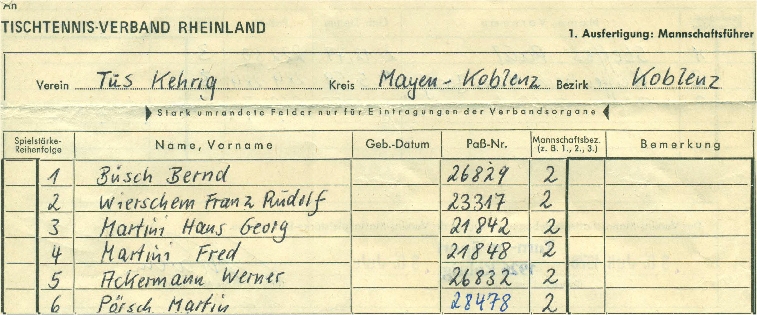 An
TISCHTENNIS-VERBAND RHEINLAND
1. Ausfertigung: Mannschaftsführer
Verein Tus Kehrig Kreis Mayen-Koblenz Bezirk Koblenz
Stark umrandete Felder nur für Eintragungen der Verbandsorgane
Spielstärke-Reihenfolge Name, Vorname Geb.-Datum Paß-Nr. Mannschaftsbez. (z. B. 1., 2., 3.) Bemerkung
1 Busch Bernd 26829 2
2 Wierschem Franz Rudolf 23317 2
3 Martini Hans Georg 21842 2
4 Martini Fred 21848 2
5 Ackermann Werner 26832 2
6 Pörsch Martin 28478 2